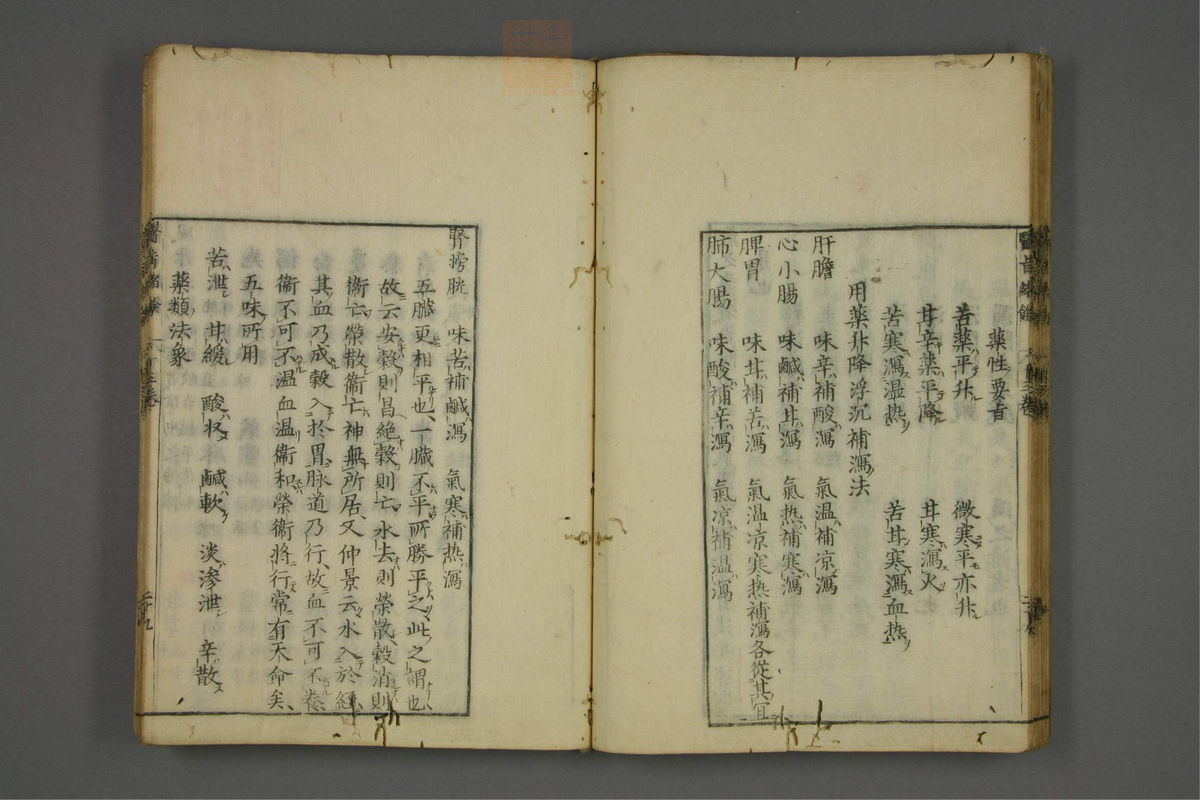 藥性要旨
苦藥平升　微寒平亦升
甘辛藥平降　甘寒瀉火
苦寒瀉濕热　苦甘寒瀉血热
用藥升降浮沉補瀉法
肝膽　味辛補酸瀉　氣温補凉瀉
心小腸　味鹹補甘瀉　氣热補寒瀉
脾胃　味甘補苦瀉　氣温凉寒热補瀉各從其宜
肺大腸　味酸補辛瀉　氣凉補温瀉
腎膀胱　味苦補鹹瀉　氣寒補热瀉
五臓更相平也一臓不平所勝平之此之謂也
故云安穀則昌絶穀則亡水去則榮散穀消則
衞亡榮散衞亡神無所居又仲景云水入於經
其血乃成穀入於胃脉道乃行故血不可不養
衞不可不温血温衞和榮衞將行常有天命矣
五味所用
苦泄　甘緩　酸収　鹹軟　淡滲泄　辛散
藥類法象